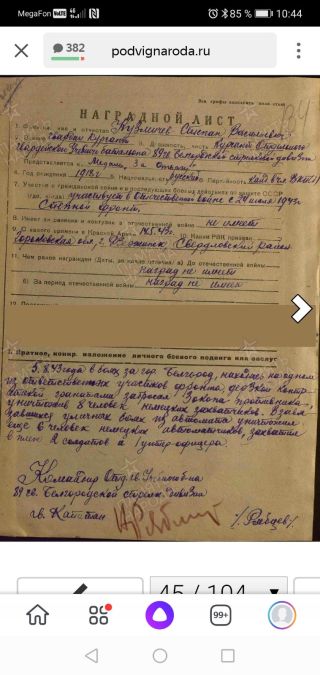 MegaFon VoWiFi 4G 85 % 10:44
382 podvignaroda.ru
НАГРАДНОЙ ЛИСТ
1. Фамилия, имя и отчество Кузьмичев Степан Васильевич
2. Звание Гвардии Курсант 3. Должность, часть Курсант Отдельного
Гвардейского Учебного батальона 89 гв. Белгородской стрелковой дивизии
Представляется к Медали „За Отвагу“
4. Год рождения 1918 г. 5. Национальность русский 6. Партийность канд. ВКП(б)
7. Участие в гражданской войне и последующих боевых действиях по защите СССР
участвует в Отечественной войне с 24 июля 1943г.
Степной фронт.
8. Имеет ли ранения и контузии в отечественной войне не имеет
9. С какого времени в Красной Армии 10. Каким РВК призван
Свердловский район
11. Чем ранее награжден (за какие отличия) а) До отечественной войны
наград не имеет
б) За период отечественной войны наград не имеет
I. Краткое, конкр. изложение личного боевого подвига или заслуг
5.8.43 года в боях за гор. Белгород, находясь на одном
из ответственных участков фронта при
гранатами забросал 3 окопа противника,
уничтожив 8 человек немецких захватчиков. В
уличных боях из автомата уничтожил
еще 6 человек немецких автоматчиков, захватил
в плен 2 солдатов и 1 унтер-офицера.
Командир Отд. гв. Учебного б-на
89 гв. Белгородской стрелк. дивизии
гв. Капитан /Рябцев/
45 / 104
99+